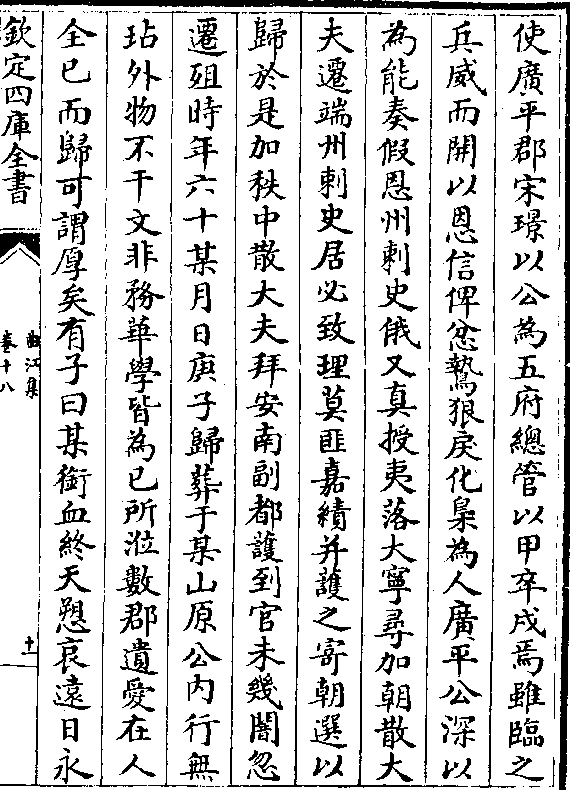 使廣平郡宋璟以公為五府總管以甲卒戍焉雖臨之
兵威而開以恩信俾忿鷙狠戾化梟為人廣平公深以
為能奏假恩州刺史俄又真授夷落大寧尋加朝散大
夫遷端州刺史居必致理莫匪嘉績并護之寄朝選以
歸於是加秩中散大夫拜安南副都護到官未幾闇忽
遷殂時年六十某月日庚子歸葬于某山原公内行無
玷外物不干文非務華學皆為已所涖數郡遺愛在人
全已而歸可謂厚矣有子曰某銜血終天愬哀遠日永
欽定四庫全書
曲江集
卷十八
十